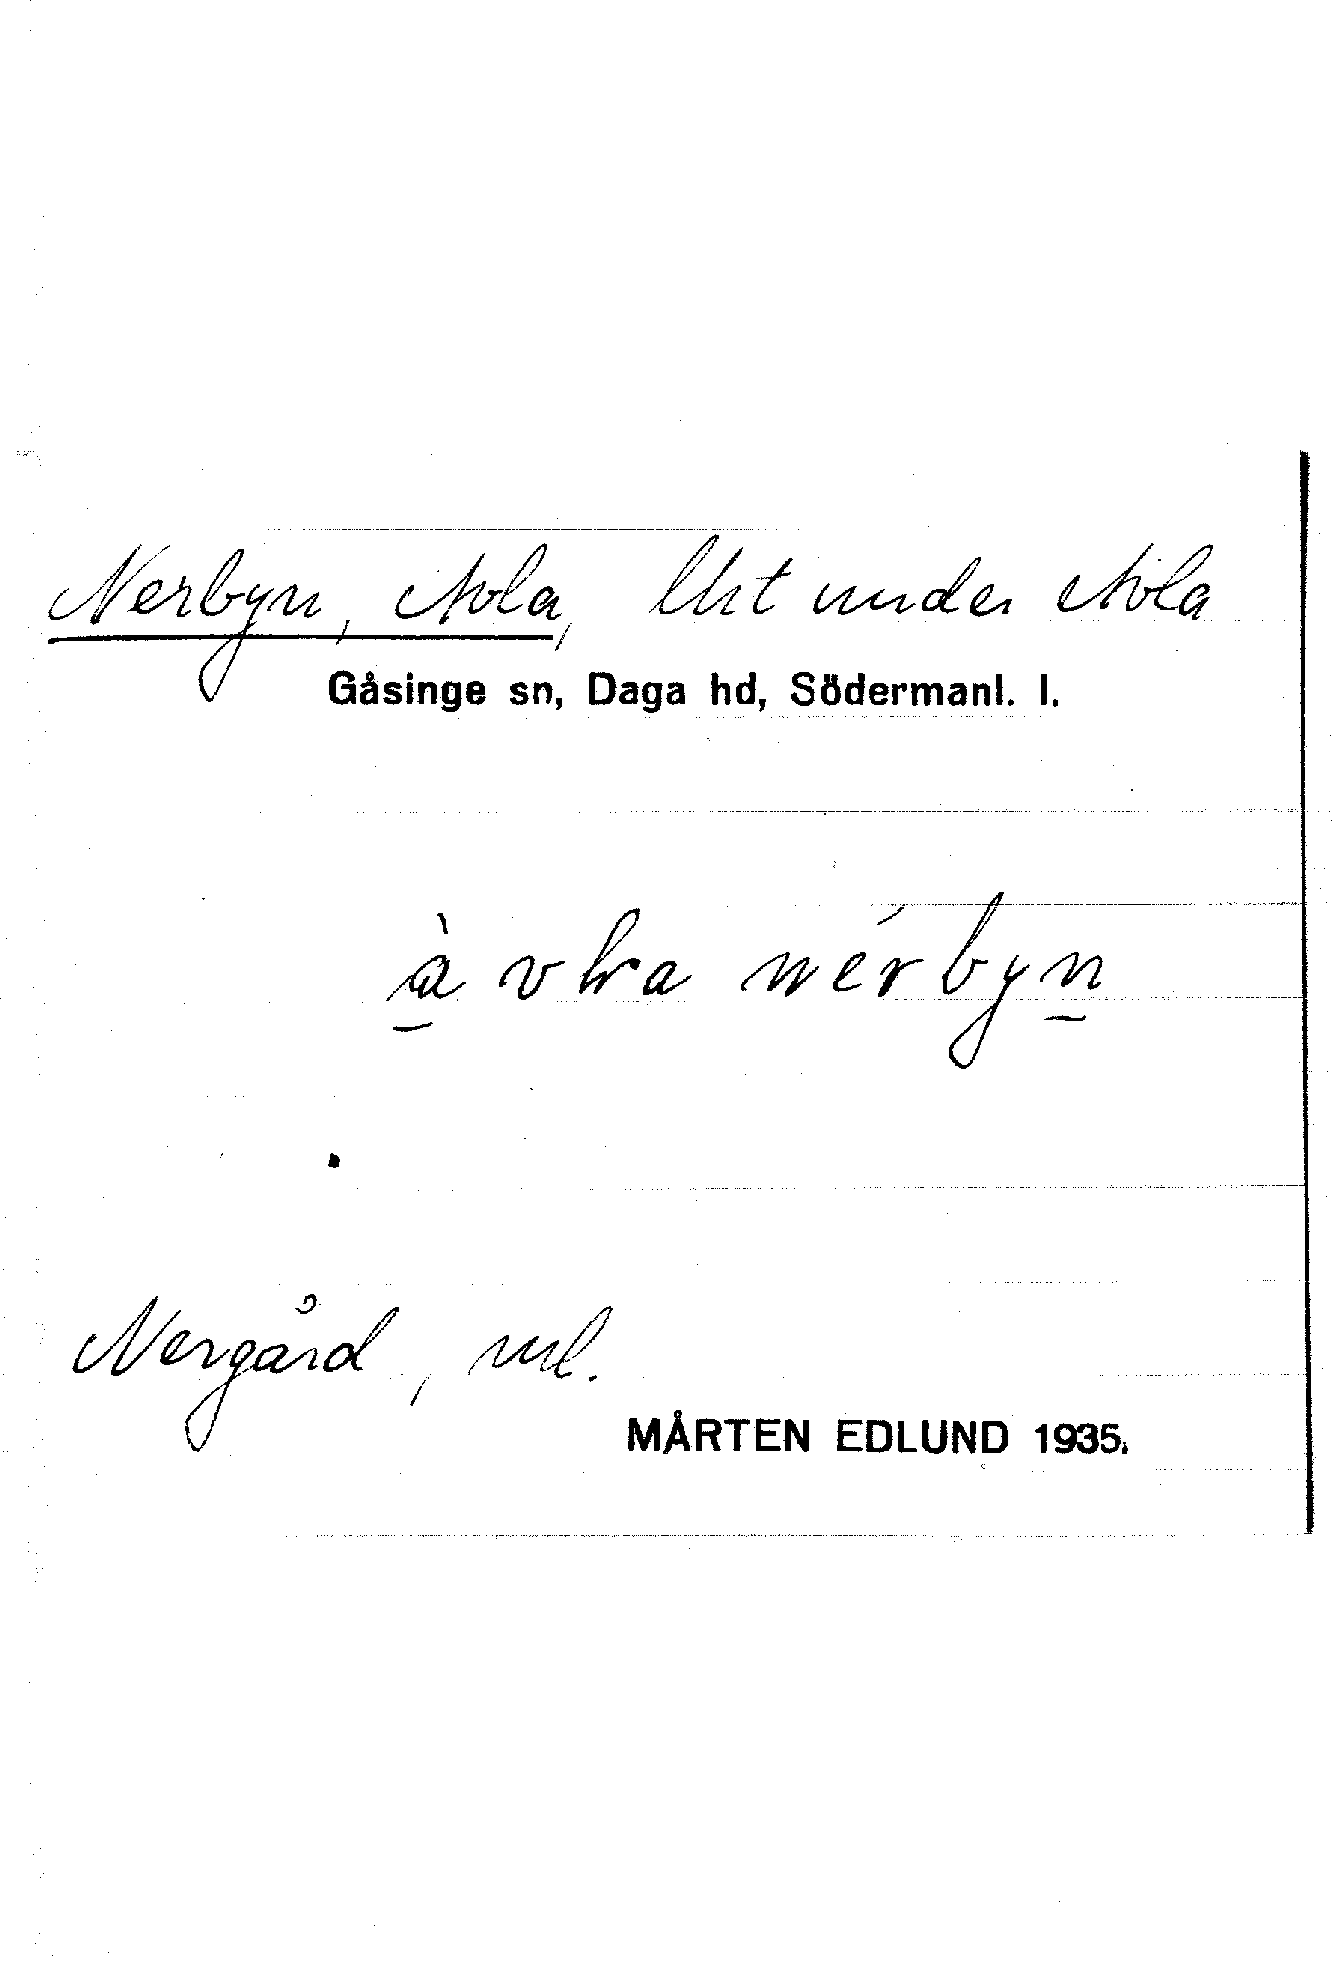 Nerbyn, Avla, lht under Avla
Gåsinge sn, Daga hd, Södermanl. l.
nérbyn
Nergård,
MÅRTEN EDLUND 1935.